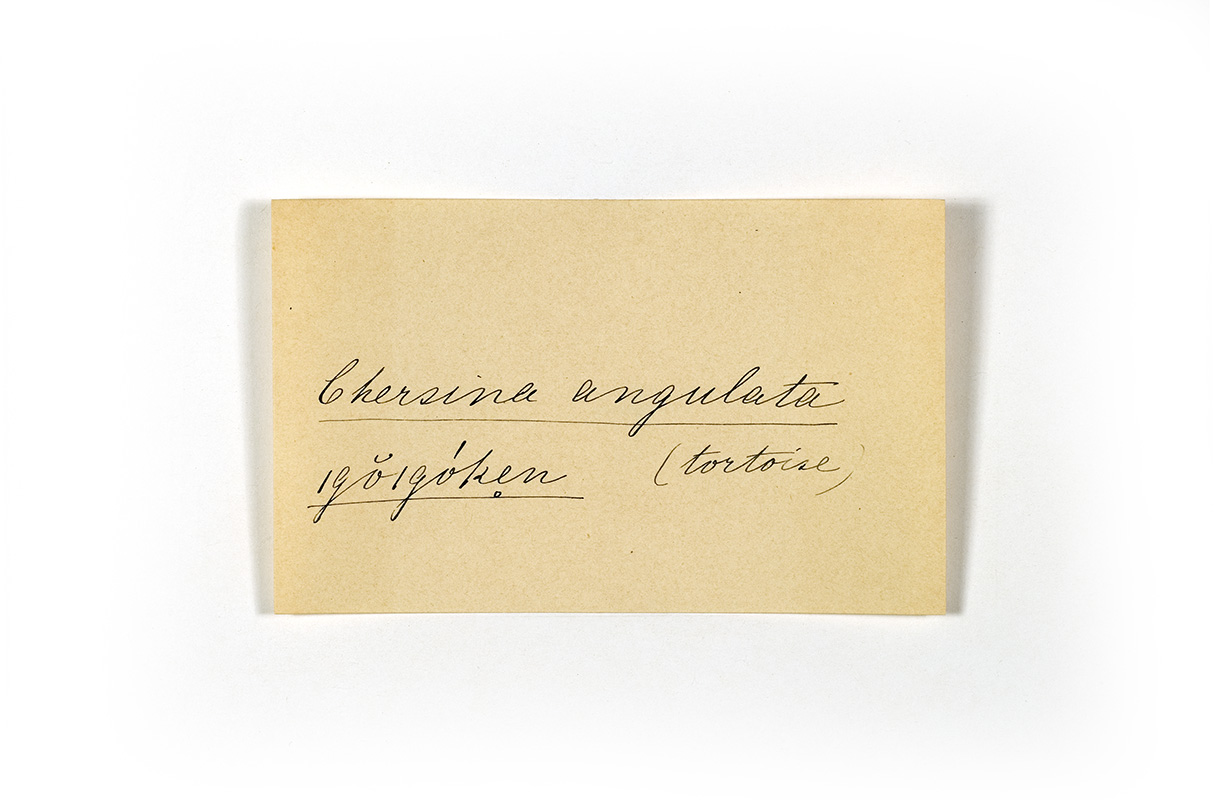 Chersina angulata
ǀgŏǀgóke̥n (tortoise)